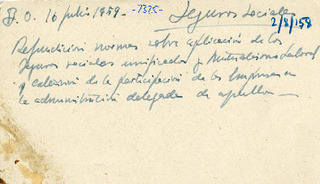 B. O. 16 julio 1959.- -7325- Seguros Sociales
2/8/58
Refundición normas sobre aplicación de los
Seguros sociales unificados y Mutualismo Laboral
y extensión de la participación de las Empresas en
la administración delegada de aquellos